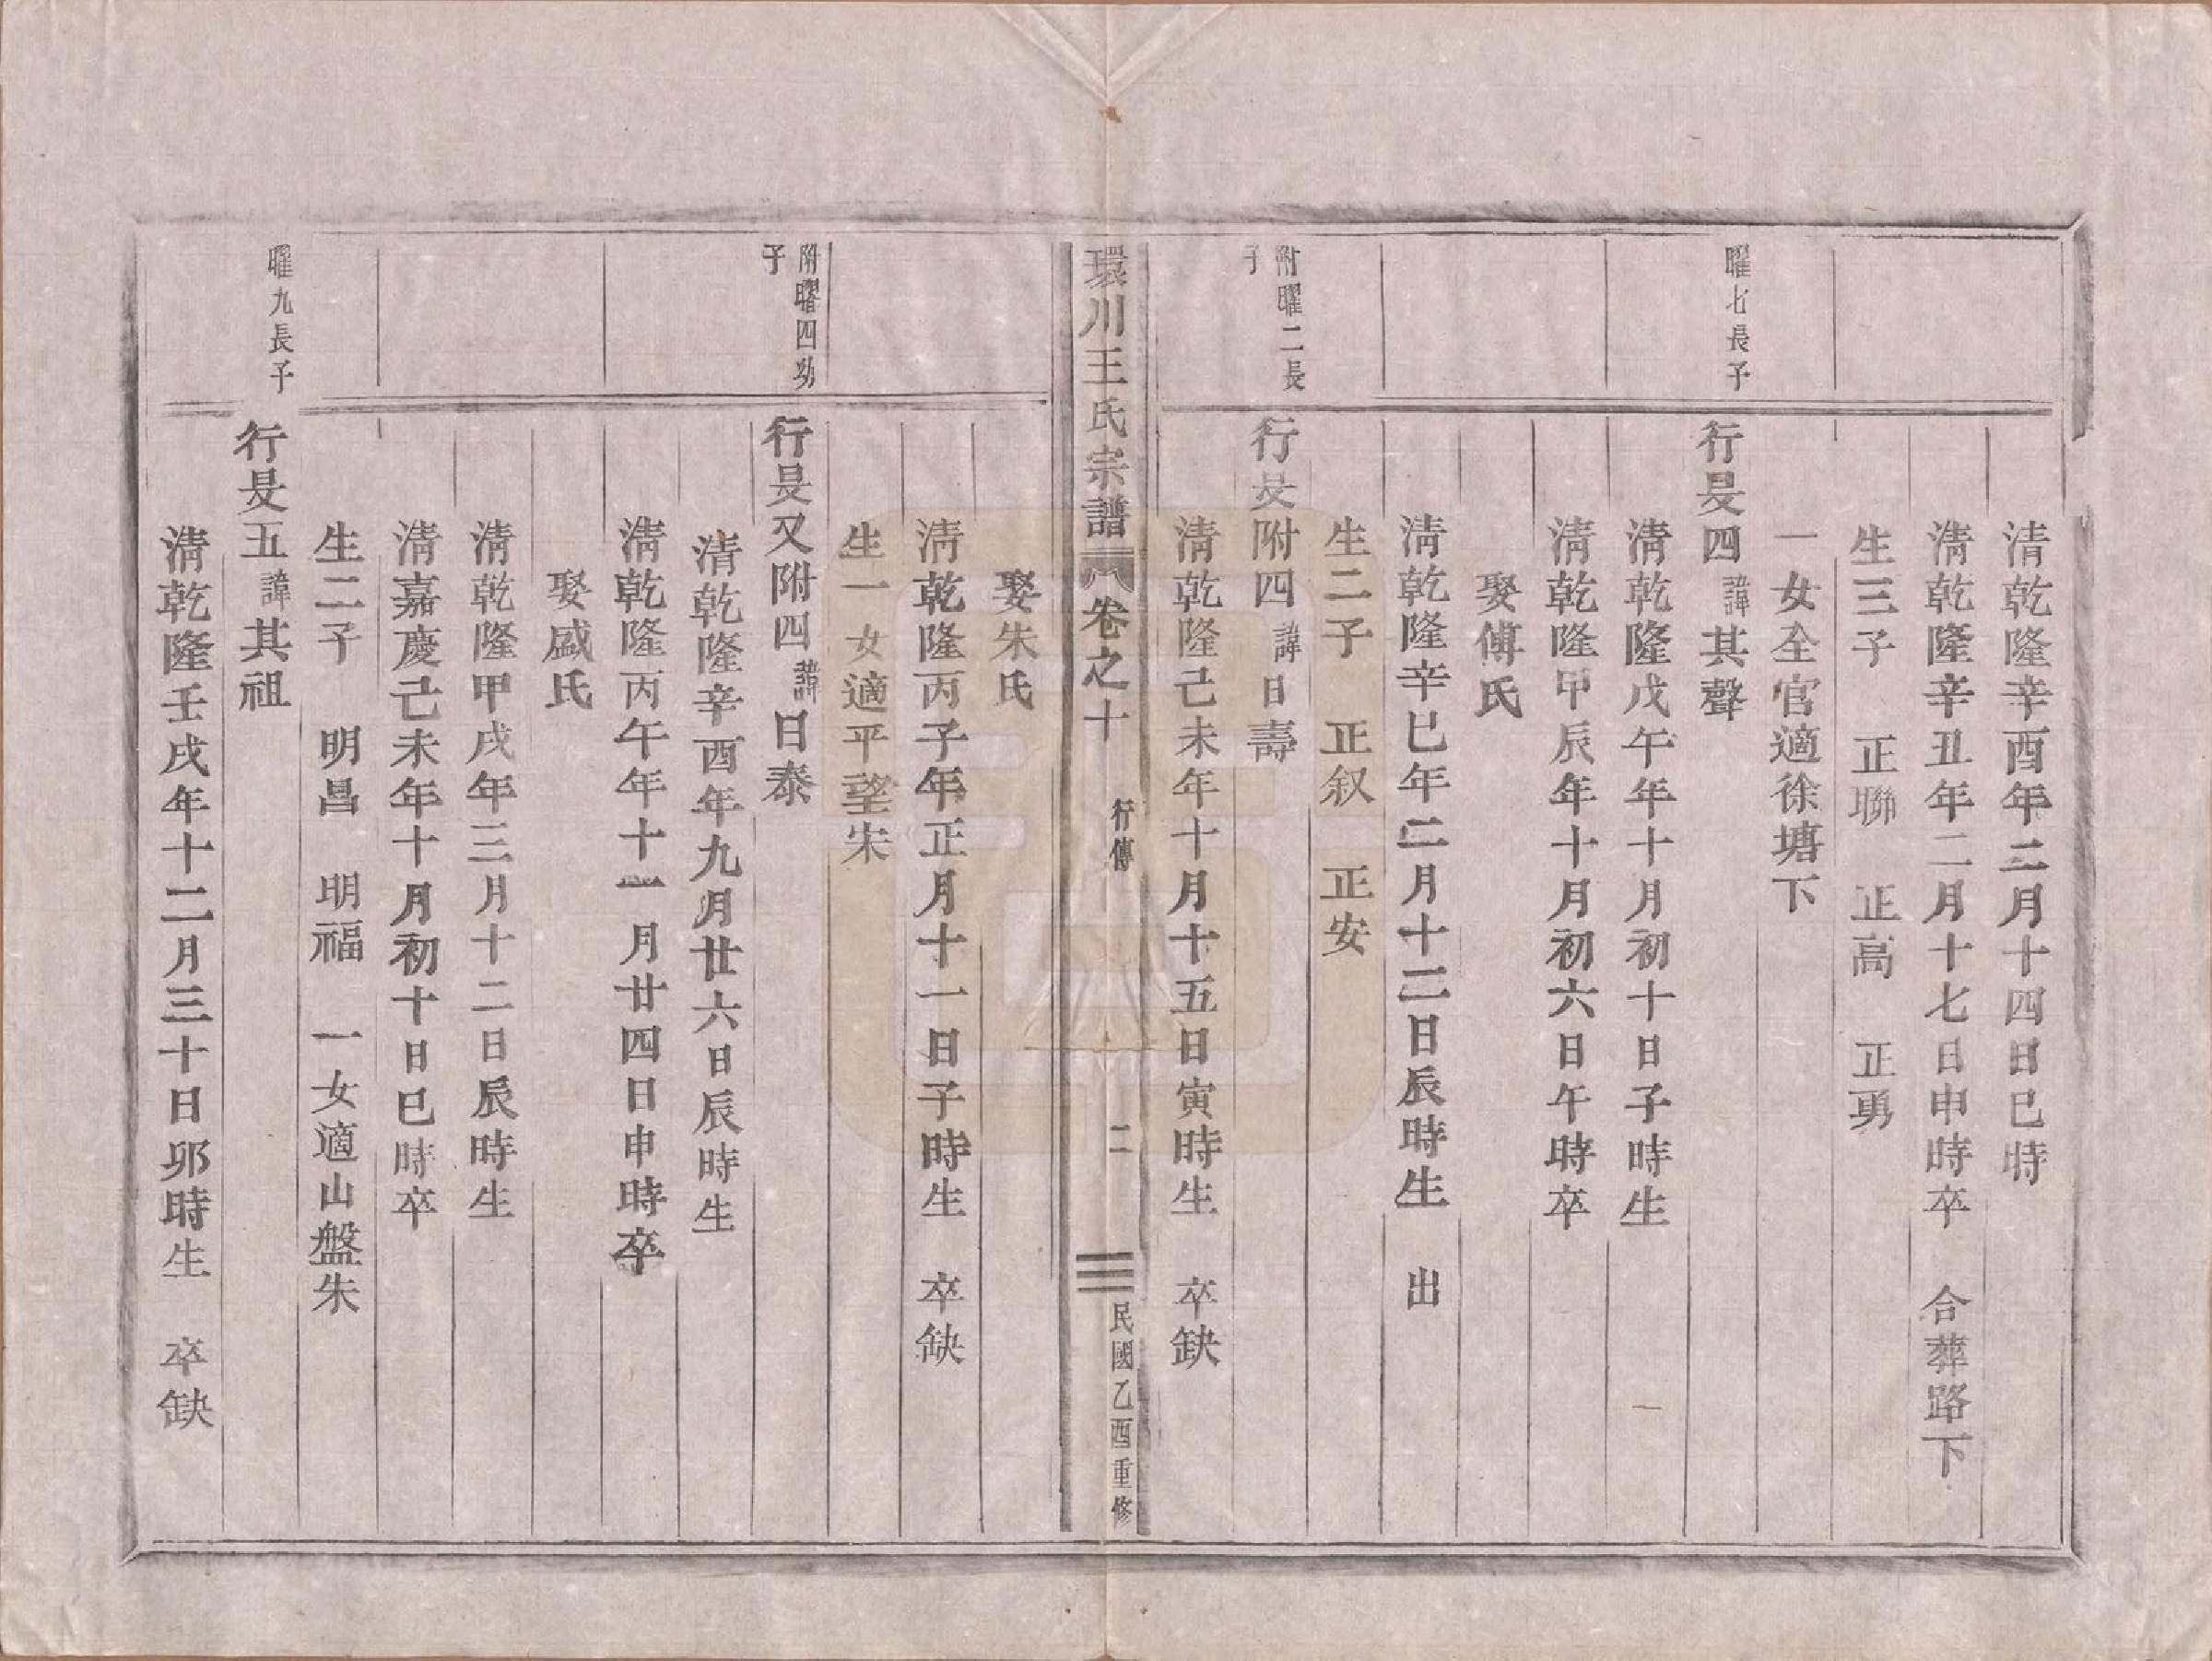 清乾隆辛酉年二月十四日巳時
清乾隆辛丑年二月十七日申時卒　合葬路下
生三子　正聯　正高　正勇
一女全官適徐塘下
曜七長子
行旻四諱其聲
清乾隆戊午年十月初十日子時生
清乾隆甲辰年十月初六日午時卒
娶傅氏
清乾隆辛巳年二月十二日辰時生　出
生二子　正叙　正安
附曜二長子
行旻附四諱日壽
清乾隆己未年十月十五日寅時生　卒缺
環川王氏宗譜　卷之十　行傳　二　民國乙酉重修
娶朱氏
清乾隆丙子年正月十一日子時生　卒缺
生一女適平望朱
附曜四幼子
行旻又附四諱日泰
清乾隆辛酉年九月廿六日辰時生
清乾隆丙午年十一月廿四日申時卒
娶盛氏
清乾隆甲戌年三月十二日辰時生
清嘉慶己未年十月初十日巳時卒
生二子　明昌　明福　一女適山盤朱
曜九長子
行旻五諱其祖
清乾隆壬戌年十二月三十日卯時生　卒缺